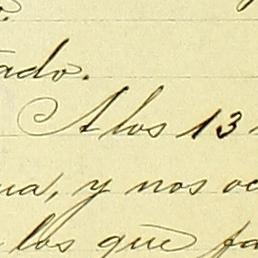 ado.
A los 13
ua, y nos oc
los que fa